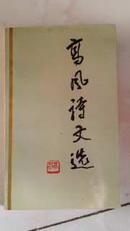 高风诗文选